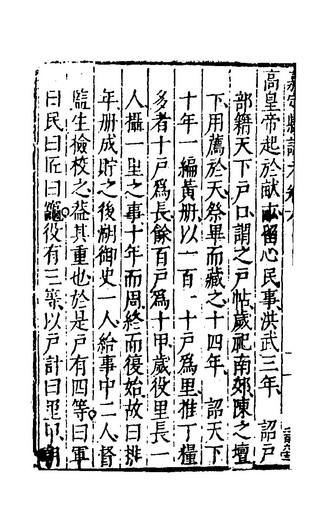 高皇帝起於献畝留心民事洪武三年　詔戸
部籍天下戸口謂之戸帖歲祀南郊陳之壇
下用薦於天祭畢而藏之十四年　詔天下
十年一編黃册以一百一十戸爲里推丁糧
多者十戸爲長餘百戸爲十甲歲役里長一
人攝一里之事十年而周終而復始故曰排
年册成貯之後湖御史一人給事中二人督
監生檢校之葢其重也於是戸有四等曰軍
曰民曰匠曰竈役有三等以戸計曰里